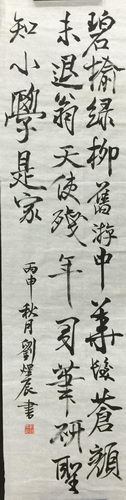 碧榆绿柳舊游中華髮蒼顏
未退翁天使殘年司筆研聖
知小學是家
丙申秋月劉煜辰書